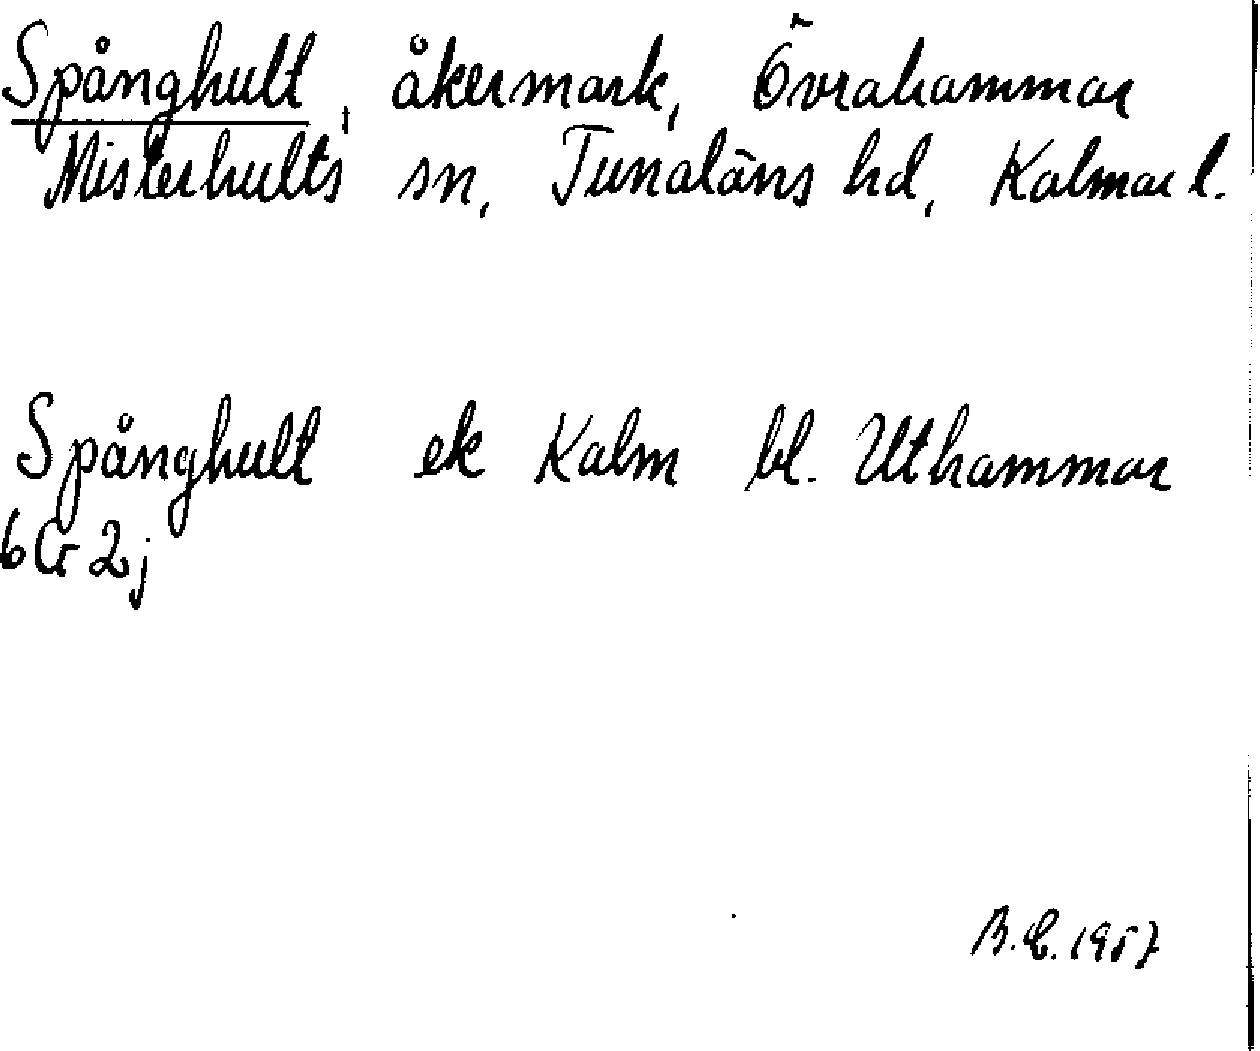 Spånghult, åkermark, Övrahammar
Misterhults sn, Tunaläns hd, Kalmar l.
Spånghult ek Kalm bl. Uthammar
6G 2j
1957